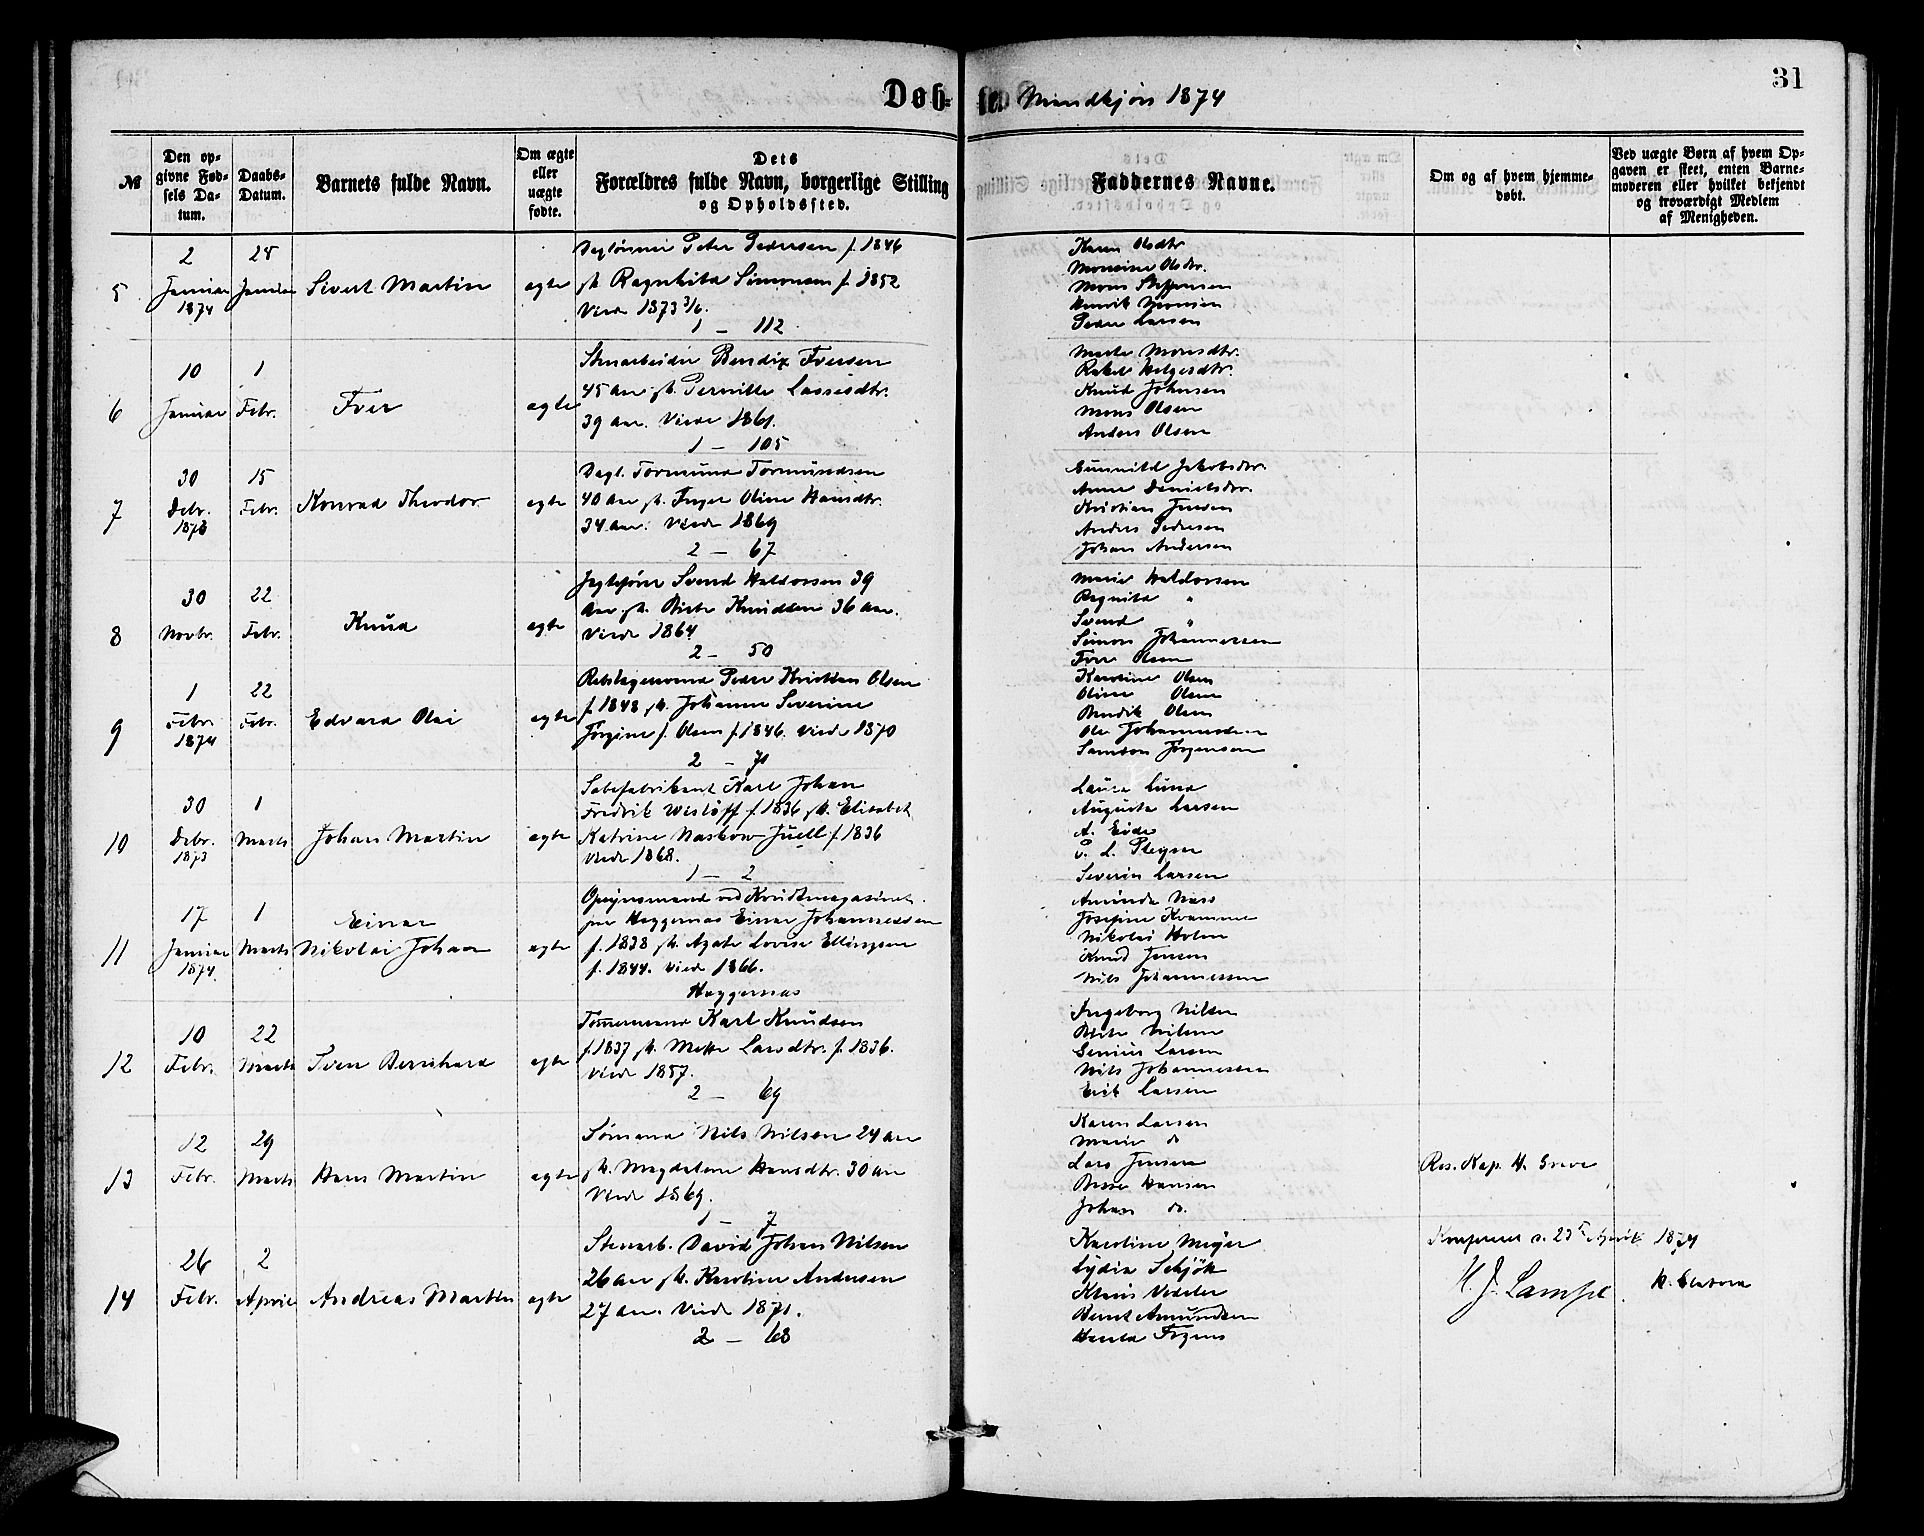 Døb-
te. Mandkjøn 1874
31
№
Den op-
givne Fød-
sels Da-
tum.
Daabs-
Datum.
Barnets fulde Navn.
Om ægte
eller
uægte
fødte.
Dets
Forældres fulde Navn, borgerlige Stilling
og Opholdssted.
Faddernes Navne.
Om og af hvem hjemme-
døbt.
Ved uægte Børn af hvem Op-
gaven er skeet, enten Barne-
moderen eller hvilket bekjendt
og troværdigt Medlem
af Menigheden.
5
2
Januar
1874
25
Januar
Sivert Martin
ægte
Daglønner Peter Pedersen f. 1846
Ragnhild Simonsen f. 1852
Viede 1873 3/6.
1 – 112
Karen Olsdtr
Monsine Olsdtr.
Mons Steffensen
Henrik Monsen
Peder Larsen
6
10
Januar
1
Febr.
Iver
ægte
Stenarbeider Bendix Iversen
45 Aar Pernille Lassesdtr.
39 Aar. Viede 1861.
1 – 105
Marte Monsdtr.
Rakel Helgesdtr.
Knud Johnsen
Mons Olsen
Anders Olsen
7
30
Debr.
1873
15
Febr.
Konrad Theodor
ægte
Dagl. Tormund Tormundsen
40 Aar Inger Oline Hansdtr.
34 Aar. Viede 1869
2 – 67
Gunnild Jakobsdtr.
Anne Danielsdtr.
Kristian Jensen
Anders Pedersen
Johan Andersen
8
30
Novbr.
22
Febr.
Knud
ægte
Jægtefører Svend Haldorsen 39
Aar Birte Knudsen 36 Aar.
Viede 1864
2 – 50
Marie Haldorsen
Ragnild "
Svend "
Simon Johannessen
Iver Olsen
9
1
Febr.
1874
22
Febr.
Edvard Olai
ægte
Rebslagersvend Peder Kristian Olsen
f. 1848 Johanne Severine
Jørgine f. Olsen f. 1846. Viede 1870
2 – 71
Karoline Olsen
Oline Olsen
Bendik Olsen
Ole Johannessen
Samson Jørgensen
10
30
Debr.
1873
1
Marts
Johan Martin
ægte
Sæbefabrikant Karl Johan
Fredrik Wislöff f. 1836 Elisabet
Katrine Maskow Juell f. 1836
Viede 1868.
1 – 2
Laura Lund
Augusta Larsen
A. Eide
Severin Larsen
11
17
Januar
1874
1
Marts
Einar
Nikolai Johan
ægte
Opsynsmand ved Krudtmagasinet
paa Heggernæs Einar Johannessen
f. 1838 Agate Lovise Ellingsen
f. 1844. Viede 1866.
Heggernæs
Aminda Næss
Josefine Kramme
Nikolai Holm
Knud Jensen
Nils Johannessen
12
10
Febr.
22
Marts
Sven Bernhard
ægte
Tømmermand Karl Knudsen
f. 1837 Mette Larsdtr. f. 1836.
Viede 1857.
2 – 69
Ingeborg Nilsen
Birte Nilsen
Lars Larsen
Nils Johannessen
Erik Larsen
13
12
Febr.
29
Marts
Hans Martin
ægte
Sømand Nils Nilsen 24 Aar
Magdalene Hansdtr. 30 Aar
Viede 1869.
1 – 7
Karen Larsen
Marie do
Lars Jensen
Hansen
Johan do.
Res. Kap. H. Greve
14
26
Febr.
2
April
Andreas Martin
ægte
Stenarb. David Johan Nilsen
26 Aar Karoline Andersen
27 Aar. Viede 1871.
2 – 68
Karoline Meyer
Lydia Schjött
Klaus Vedeler
Bernt Amundsen
Konfereret d. 23 April 1874
H. J. Lampe.